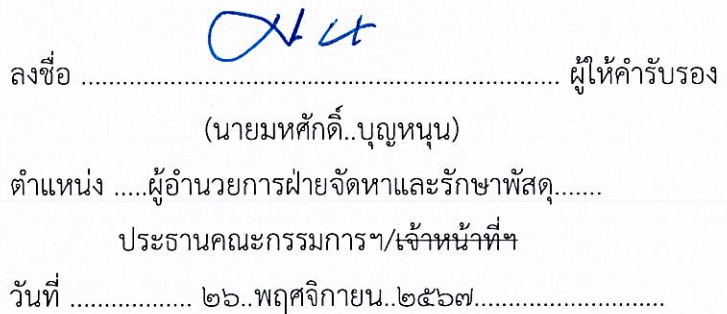 ลงชื่อ ....................................................................... ผู้ให้คำรับรอง
(นายมหศักดิ์..บุญหนุน)
ตำแหน่ง .....ผู้อำนวยการฝ่ายจัดหาและรักษาพัสดุ.......
ประธานคณะกรรมการฯ/เจ้าหน้าที่ฯ
วันที่ .................. ๒๖..พฤศจิกายน..๒๕๖๗............................